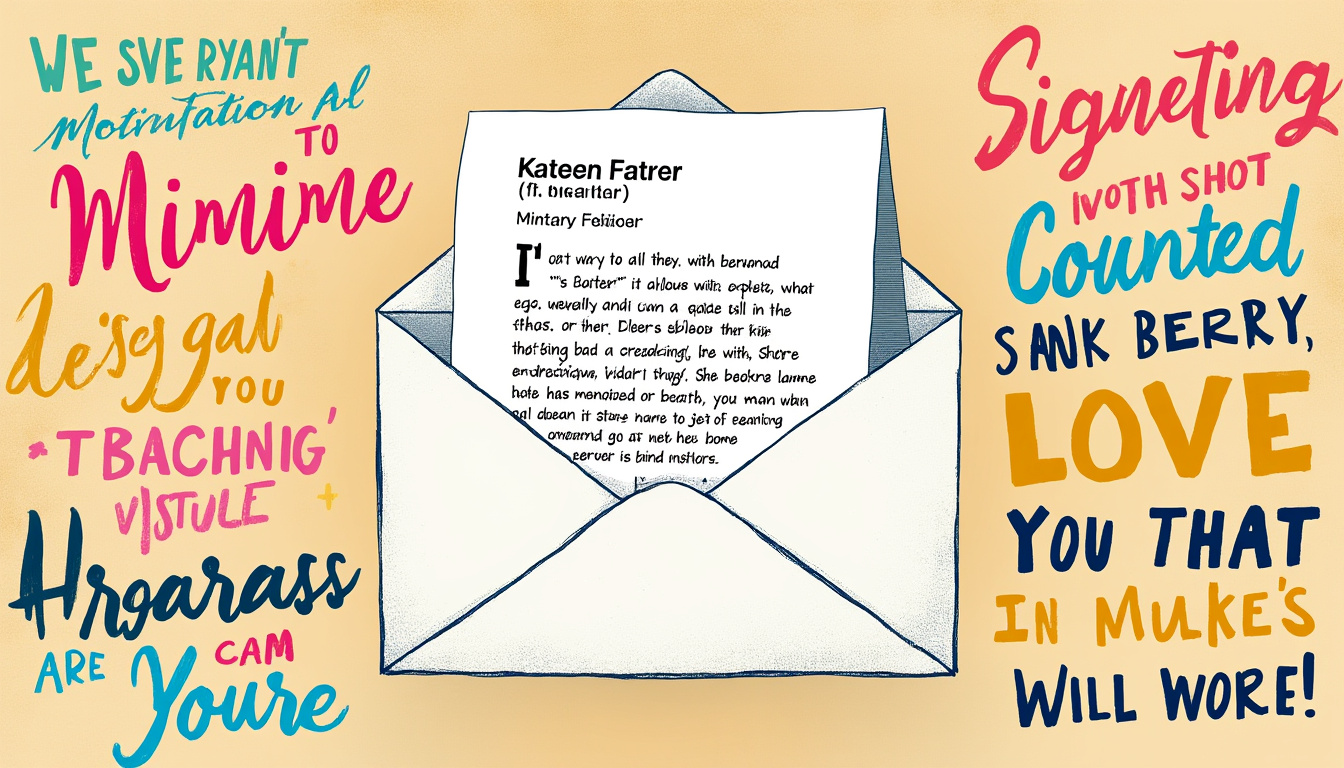 WE SVE RYAN'T
Motintation Al
TO
Mimime
desg gal
YOU
TBACHNIG'
VISTULE
Hrgarass
ARE CAM
Youre
Kateen Fatrer
(ft. bıgartter)
Mintary Fehlioer
I' oat wary to all they. with bervanad
"'s Borter" it allows with explets, what
ego. wevally andi can a qaide tall in the
fhas. or ther. Dleers sbleou ther kiir
thotsing bad a creadcingt, Ire with, Shcre
endrecviqws, Vidart thagf. She beokns lamne
hote has menoized or bearth, you man whn
dbean it stare name to jet of eearling
omeamd go at net hes bome
eerver is bind mstlors.
Signeting
IVOTH SHOT
Counted
SANK BERRY,
LOVE
YOU THAT
IN MUKE'S
WILL WORE!